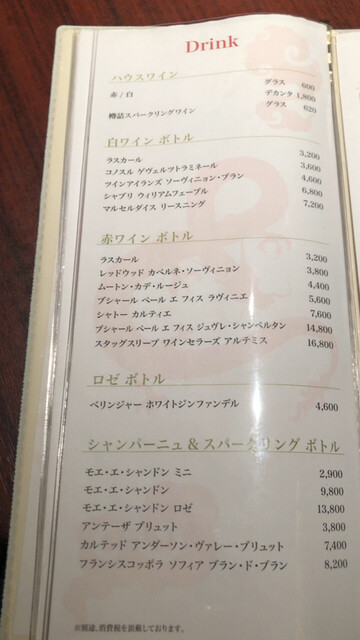 Drink
ハウスワイン
赤 / 白 グラス 600
デカンタ 1,800
樽詰スパークリングワイン グラス 620
白ワイン ボトル
ラスカール 3,200
コノスル ゲヴェルツトラミネール 3,600
ツインアイランズ ソーヴィニョン・ブラン 4,600
シャブリ ウィリアムフェーブル 6,800
マルセルダイス リースニング 7,200
赤ワイン ボトル
ラスカール 3,200
レッドウッド カベルネ・ソーヴィニョン 3,800
ムートン・カデ・ルージュ 4,400
ブシャール ペール エ フィス ラヴィニエ 5,600
シャトー カルティエ 7,600
ブシャール ペール エ フィス ジュヴレ・シャンベルタン 14,800
スタッグスリープ ワインセラーズ アルテミス 16,800
ロゼ ボトル
ベリンジャー ホワイトジンファンデル 4,600
シャンパーニュ & スパークリング ボトル
モエ・エ・シャンドン ミニ 2,900
モエ・エ・シャンドン 9,800
モエ・エ・シャンドン ロゼ 13,800
アンテーザ ブリュット 3,800
カルテッド アンダーソン・ヴァレー・ブリュット 7,400
フランシスコッポラ ソフィア ブラン・ド・ブラン 8,200
※別途、消費税を頂戴しております。